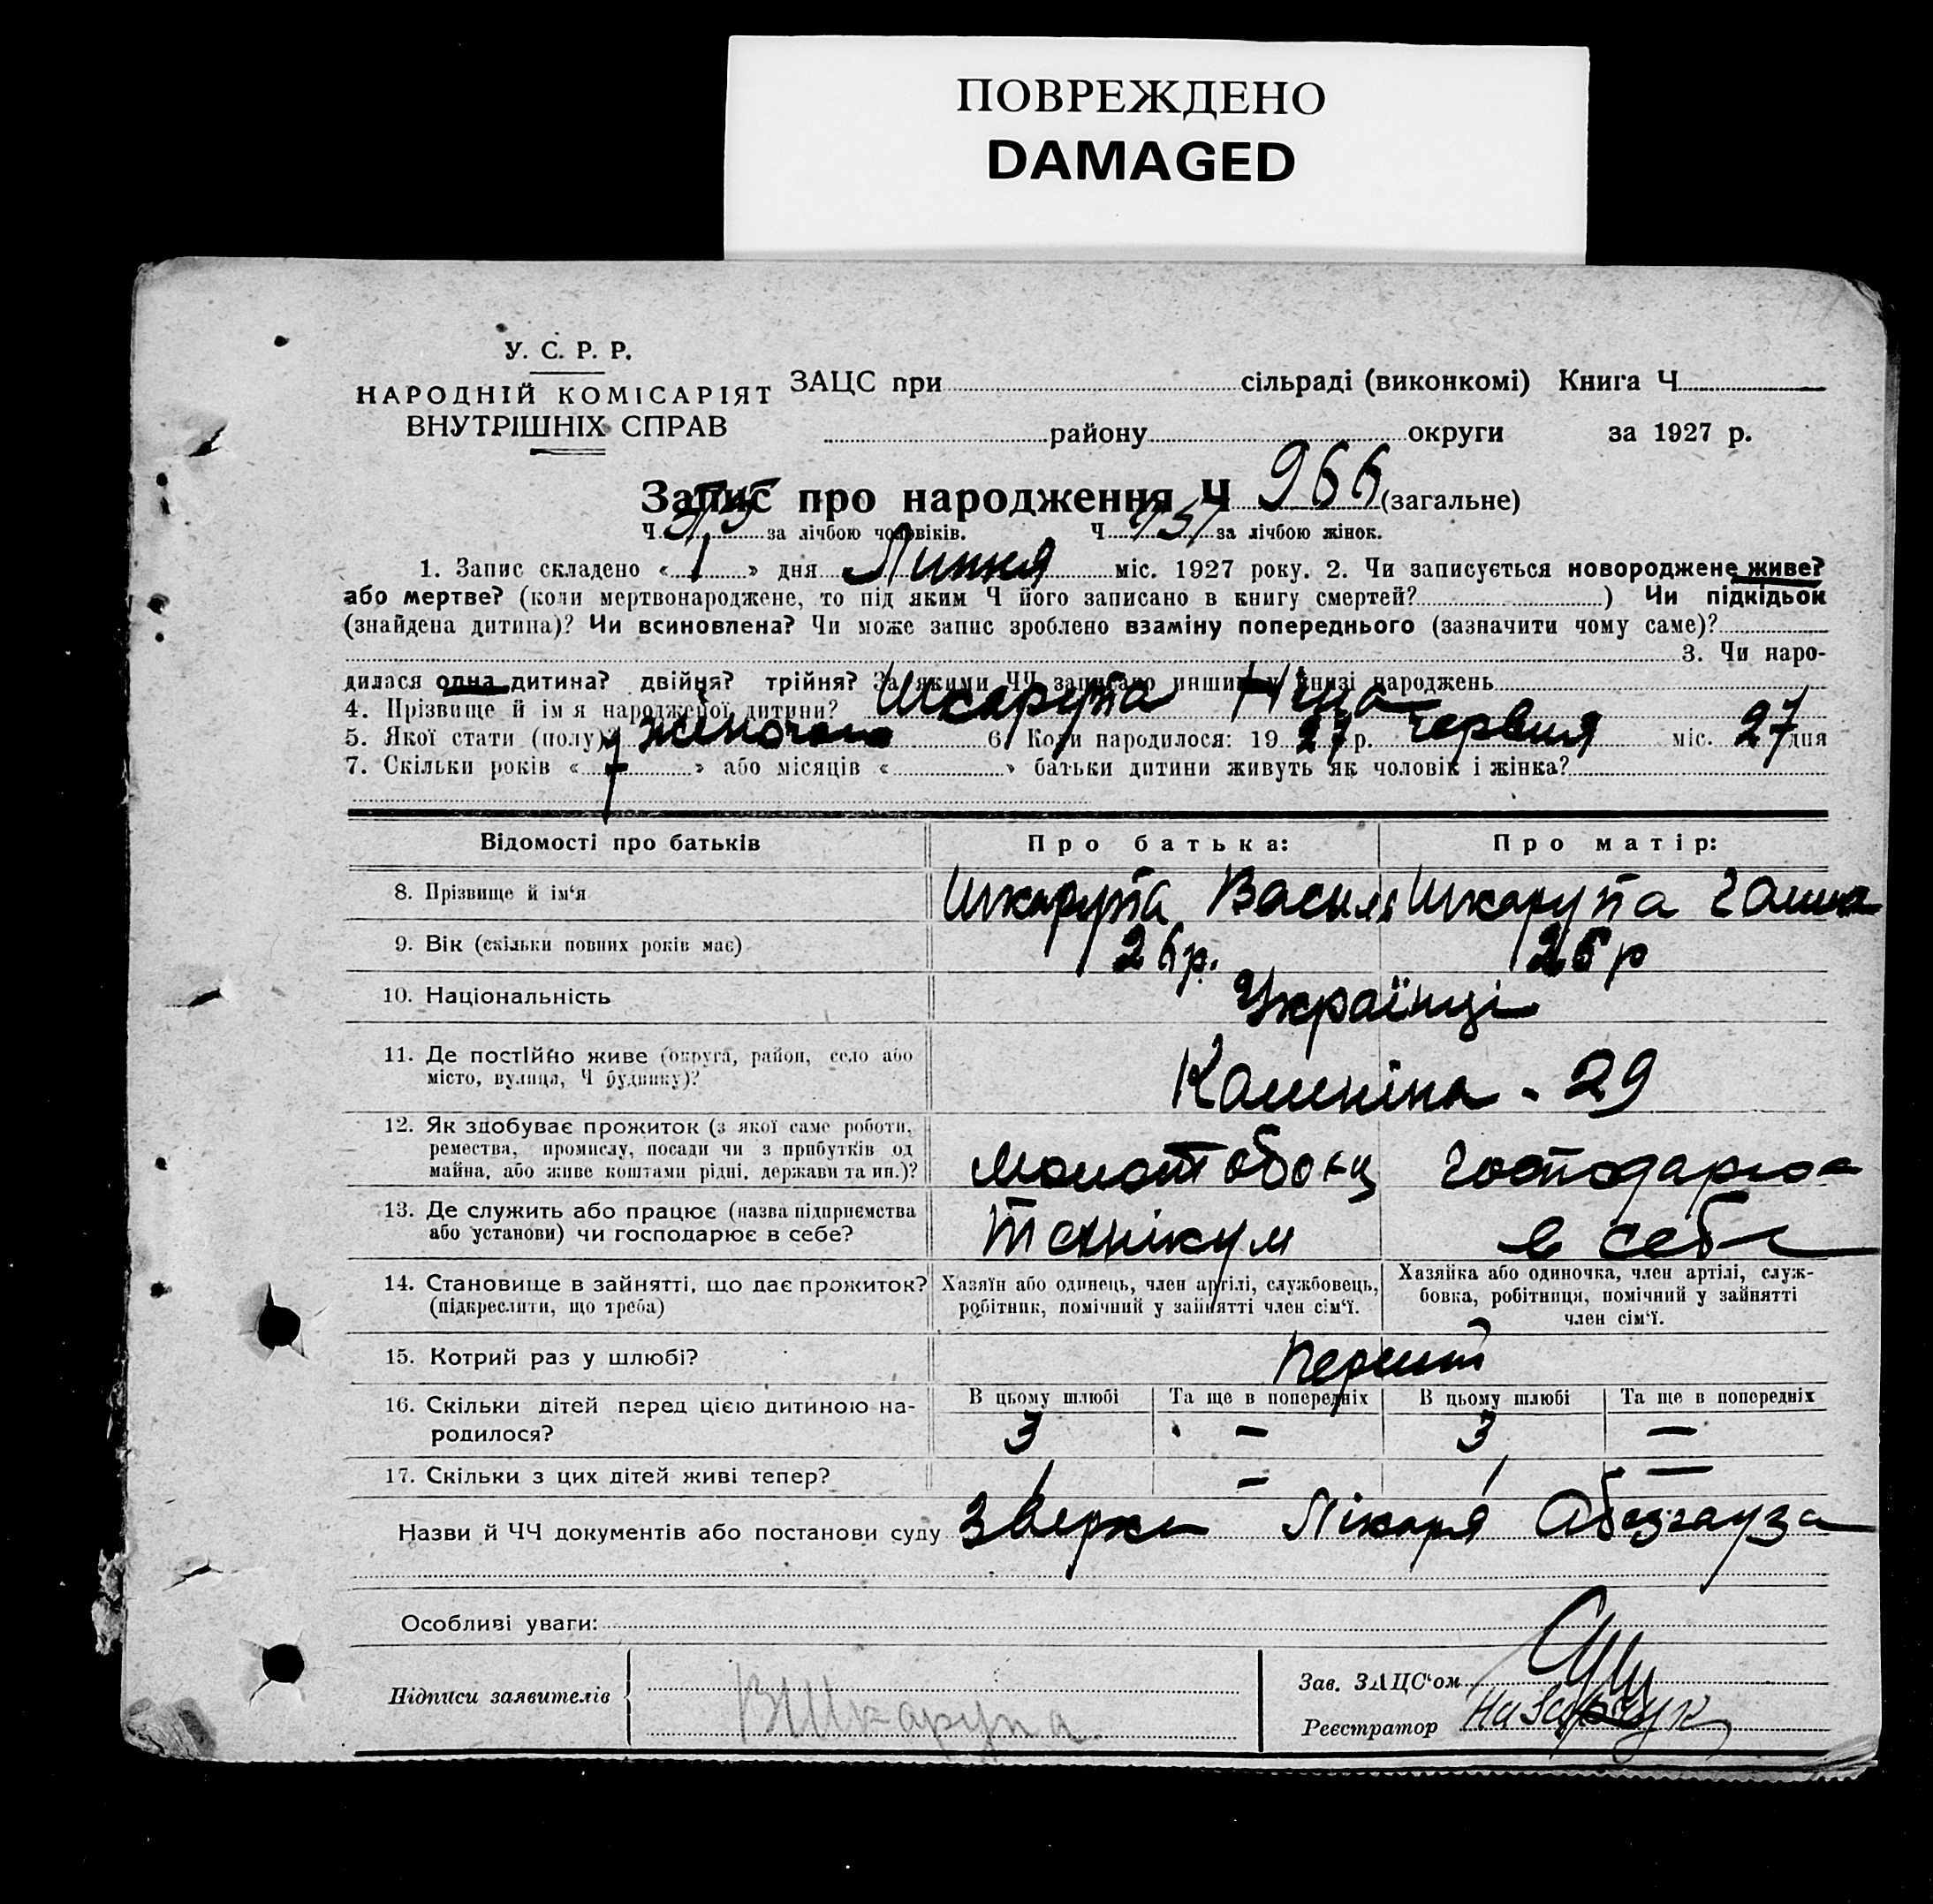 ПОВРЕЖДЕНО
DAMAGED
У. С. Р. Р.
НАРОДНІЙ КОМІСАРІЯТ
ВНУТРІШНІХ СПРАВ
ЗАЦС при сільраді (виконкомі) Книга Ч
району округи за 1927 р.
Запис про народження Ч 966 (загальне)
Ч за лічбою чоловіків. Ч за лічбою жінок.
1. Запис складено «1» дня Липня міс. 1927 року. 2. Чи записується новороджене живе?
або мертве? (коли мертвонароджене, то під яким Ч його записано в книгу смертей? ) Чи підкідьок
(знайдена дитина)? Чи всиновлена? Чи може запис зроблено взаміну попереднього (зазначити чому саме)?
3. Чи наро-
дилася одна дитина? двійня? трійня? За якими ЧЧ записано инших у книзі народжень
4. Прізвище й ім я народженої дитини? Шкарупа Ніна
5. Якої стати (полу)? жіночого 6. Коли народилося: 1927 р. Червня міс. 27 дня
7. Скільки років «7» або місяців « » батьки дитини живуть як чоловік і жінка?
Відомості про батьків
Про батька:
Про матір:
8. Прізвище й ім‘я
Шкарупа Василь
Шкарупа Ганна
9. Вік (скільки повних років має)
26 р.
26 р
10. Національність
Українці
11. Де постійно живе (округа, район, село або
місто, вулиця, Ч будинку)?
Калініна - 29
12. Як здобуває прожиток (з якої саме роботи,
ремества, промислу, посади чи з прибутків од
майна, або живе коштами рідні, держави та ин.)?
молотобоєц
господарює
13. Де служить або працює (назва підприємства
або установи) чи господарює в себе?
Технікум
в себе
14. Становище в зайнятті, що дає прожиток?
(підкреслити, що треба)
Хазяїн або одинець, член артілі, службовець,
робітник, помічний у зайнятті член сім‘ї.
Хазяйка або одиночка, член артілі, служ-
бовка, робітниця, помічний у зайнятті
член сім‘ї.
15. Котрий раз у шлюбі?
Перший
16. Скільки дітей перед цією дитиною на-
родилося?
В цьому шлюбі
Та ще в попередніх
В цьому шлюбі
Та ще в попередніх
3 – 3 –
17. Скільки з цих дітей живі тепер?
1 – 1 –
Назви й ЧЧ документів або постанови суду Лікаря Абезгауза
Особливі уваги:
Підписи заявителів
ВШкарупа
Зав. ЗАЦС‘ом
Реєстратор Назарчук